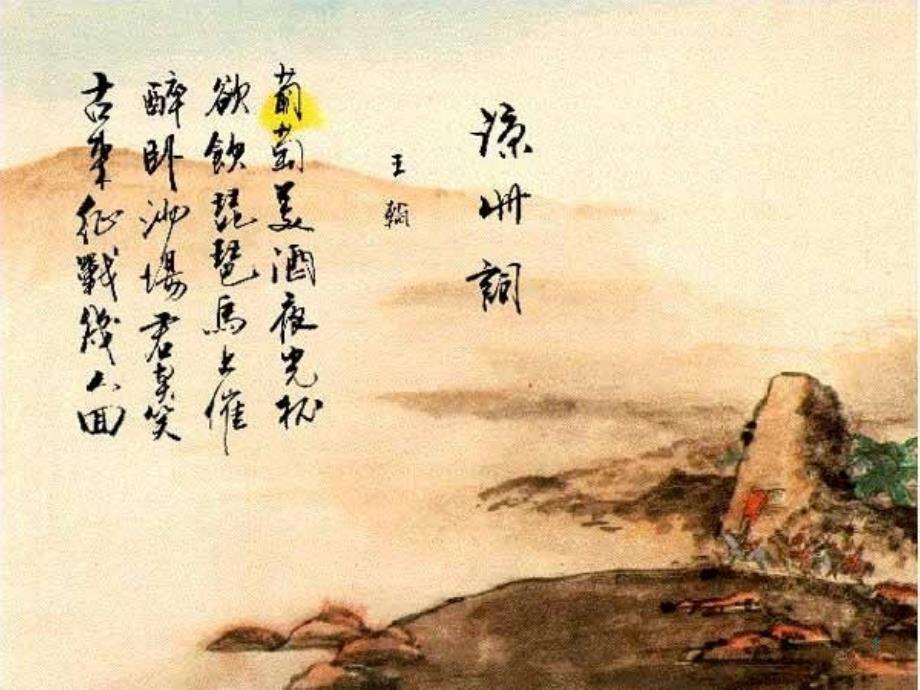 涼州詞
王翰
葡萄美酒夜光杯
欲飲琵琶馬上催
醉卧沙場君莫笑
古來征戰幾人回
1